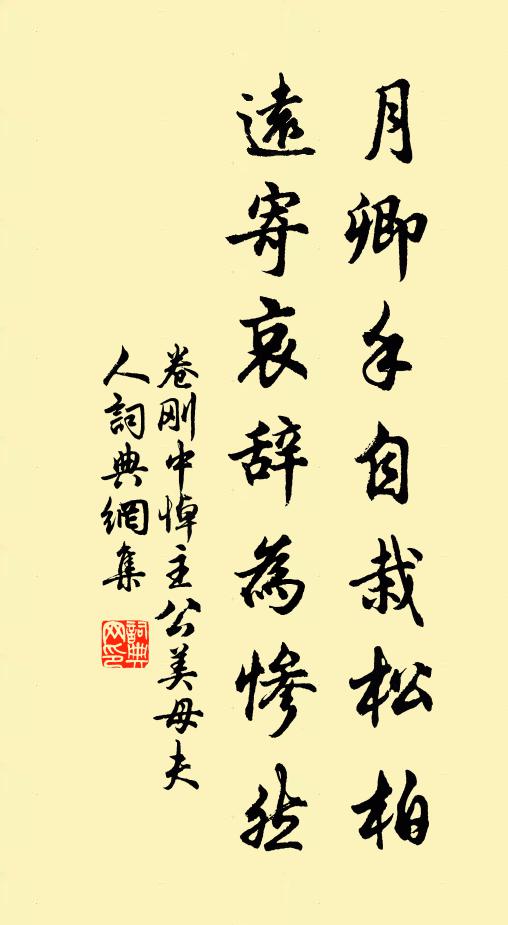 月卿手自栽松柏
遠寄哀辞為慘然
卷剛中悼主公美母夫
人詞典網集
詞典
网印